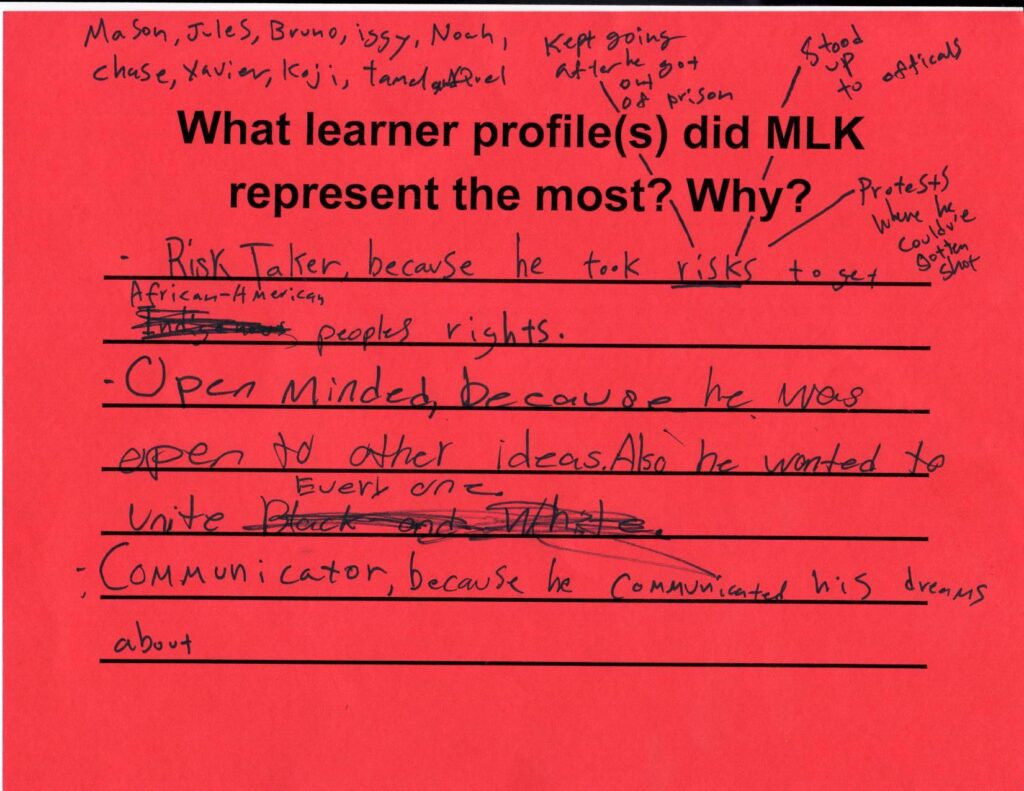 Mason, Jules, Bruno, iggy, Noah,
chase, Xavier, Koji,
Kept going
after he got
out
of prison
Stood
up
to officals
What learner profile(s) did MLK
represent the most? Why?
Protests
Where he
Couldv'e
gotten
shot
· Risk Taker, because he took risks to get
African-American
Indigenous peoples rights.
· Open Minded, because he was
open to other ideas. Also he wanted to
Every one.
unite Black and White.
· Communicator, because he communicated his dreams
about